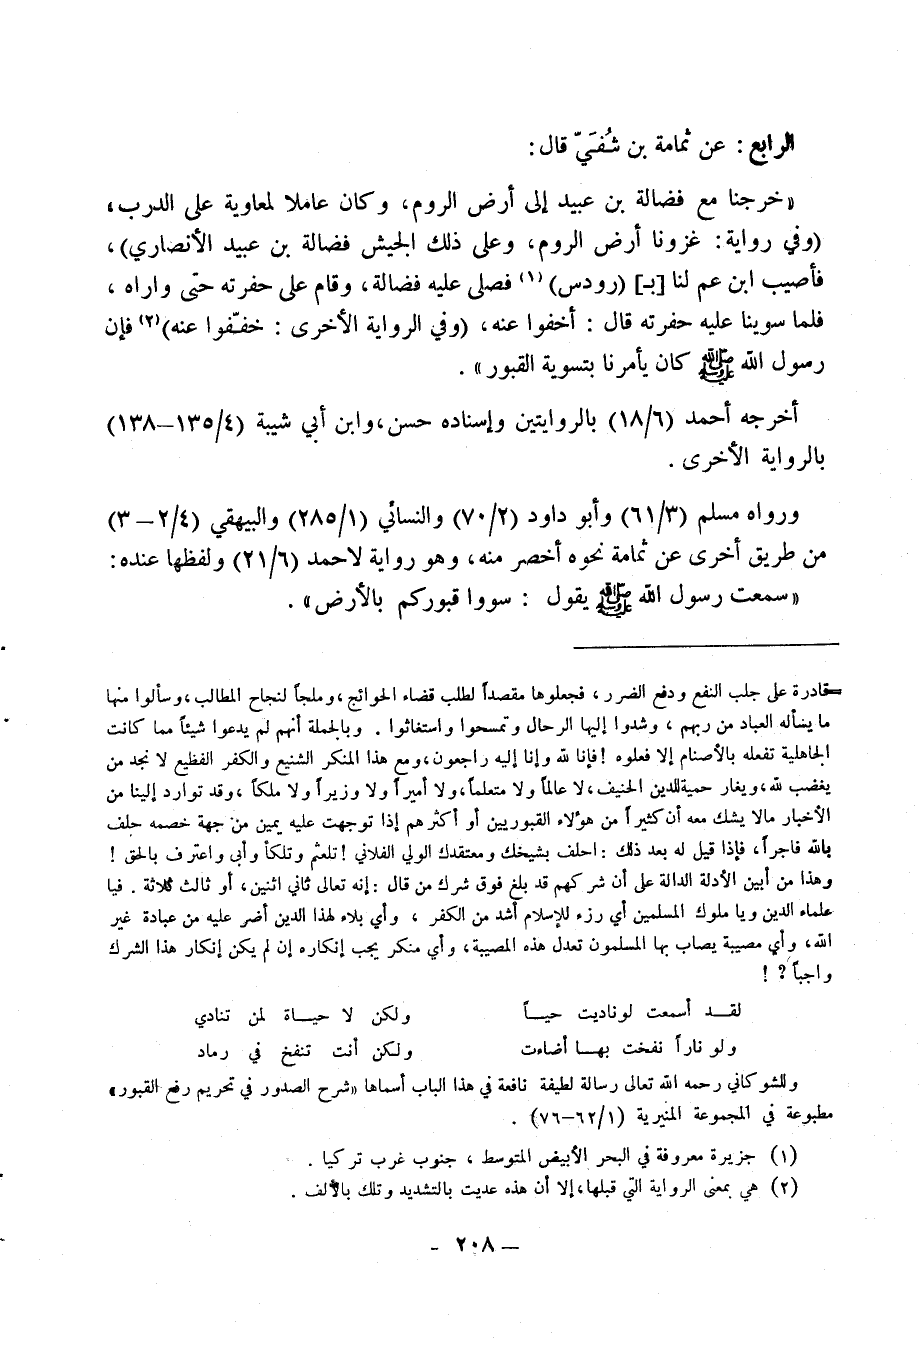 الرابع : عن ثمامة بن شُفَيّ قال :
«خرجنا مع فضالة بن عبيد إلى أرض الروم، وكان عاملا لمعاوية على الدرب،
(وفي رواية : غزونا أرض الروم، وعلى ذلك الجيش فضالة بن عبيد الأنصاري)،
فأصيب ابن عم لنا [بـ] (رودس) (١) فصلى عليه فضالة، وقام على حفرته حتى واراه ،
فلما سوينا عليه حفرته قال : أخفوا عنه، (وفي الرواية الأخرى : خفّفوا عنه)(٢) فإن
رسول الله ﷺ كان يأمرنا بتسوية القبور» .
أخرجه أحمد (١٨/٦) بالروايتين وإسناده حسن، وابن أبي شيبة (١٣٥/٤–١٣٨)
بالرواية الأخرى .
ورواه مسلم (٦١/٣) وأبو داود (٧٠/٢) والنسائي (٢٨٥/١) والبيهقي (٢/٤ – ٣)
من طريق أخرى عن ثمامة نحوه أخصر منه، وهو رواية لاحمد (٢١/٦) ولفظها عنده :
«سمعت رسول الله ﷺ يقول : سووا قبوركم بالأرض» .
=قادرة على جلب النفع ودفع الضرر ، فجعلوها مقصداً لطلب قضاء الحوائج ، وملجأ لنجاح المطالب ، وسألوا منها
ما يسأله العباد من ربهم ، وشدوا إليها الرحال وتمسحوا واستغاثوا . وبالجملة أنهم لم يدعوا شيئاً مما كانت
الجاهلية تفعله بالأصنام إلا فعلوه ! فإنا لله وإنا إليه راجعون ، ومع هذا المنكر الشنيع والكفر الفظيع لا نجد من
يغضب لله ، ويغار حمية للدين الحنيف ، لا عالماً ولا متعلماً ، ولا أميراً ولا وزيراً ولا ملكاً ، وقد توارد إلينا من
الأخبار مالا يشك معه أن كثيراً من هؤلاء القبوريين أو أكثرهم إذا توجهت عليه يمين من جهة خصمه حلف
بالله فاجراً ، فإذا قيل له بعد ذلك : احلف بشيخك ومعتقدك الولي الفلاني ! تلعثم وتلكأ وأبى واعترف بالحق !
وهذا من أبين الأدلة الدالة على أن شركهم قد بلغ فوق شرك من قال : إنه تعالى ثاني اثنين ، أو ثالث ثلاثة . فيا
علماء الدين ويا ملوك المسلمين أي رزء للإسلام أشد من الكفر ، وأي بلاء لهذا الدين أضر عليه من عبادة غير
الله ، وأي مصيبة يصاب بها المسلمون تعدل هذه المصيبة ، وأي منكر يجب إنكاره إن لم يكن إنكار هذا الشرك
واجباً ؟ !
لقـــد أسمعت لوناديت حيــاً ولكن لا حيـــاة لمن تنادي
ولو ناراً نفخت بهـــا أضاءت ولكن أنت تنفخ في رماد
وللشوكاني رحمه الله تعالى رسالة لطيفة نافعة في هذا الباب أسماها «شرح الصدور في تحريم رفع القبور»
مطبوعة في المجموعة المنيرية (٦٢/١–٧٦) .
(١) جزيرة معروفة في البحر الأبيض المتوسط ، جنوب غرب تركيا .
(٢) هي بمعنى الرواية التي قبلها ، إلا أن هذه عديت بالتشديد وتلك بالألف .
– ٢٠٨ -